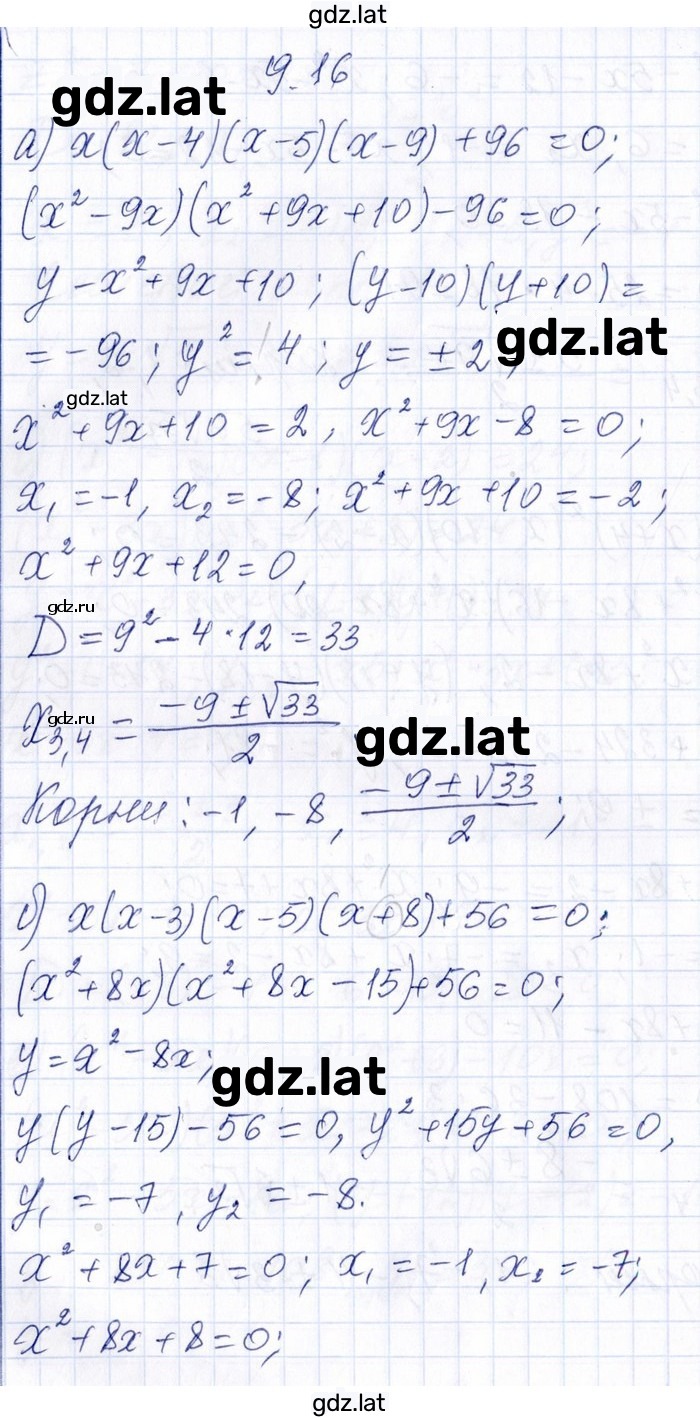 gdz.lat
9.16
gdz.lat
а) x(x-4)(x-5)(x-9)+96=0;
(x²-9x)(x²+9x+10)-96=0;
y-x²+9x+10; (y-10)(y+10)=
=-96; y²=4; y=±2,
gdz.lat
gdz.lat
x²+9x+10=2, x²+9x-8=0;
x₁=-1, x₂=-8; x²+9x+10=-2;
x²+9x+12=0,
gdz.ru
D=9²-4·12=33
gdz.ru
x₃,₄=(-9±√33)/2
gdz.lat
Корни: -1, -8, (-9±√33)/2;
б) x(x-3)(x-5)(x+8)+56=0;
(x²+8x)(x²+8x-15)+56=0;
y=x²-8x;
gdz.lat
y(y-15)-56=0, y²+15y+56=0,
y₁=-7, y₂=-8.
x²+8x+7=0; x₁=-1, x₂=-7;
x²+8x+8=0;
gdz.lat